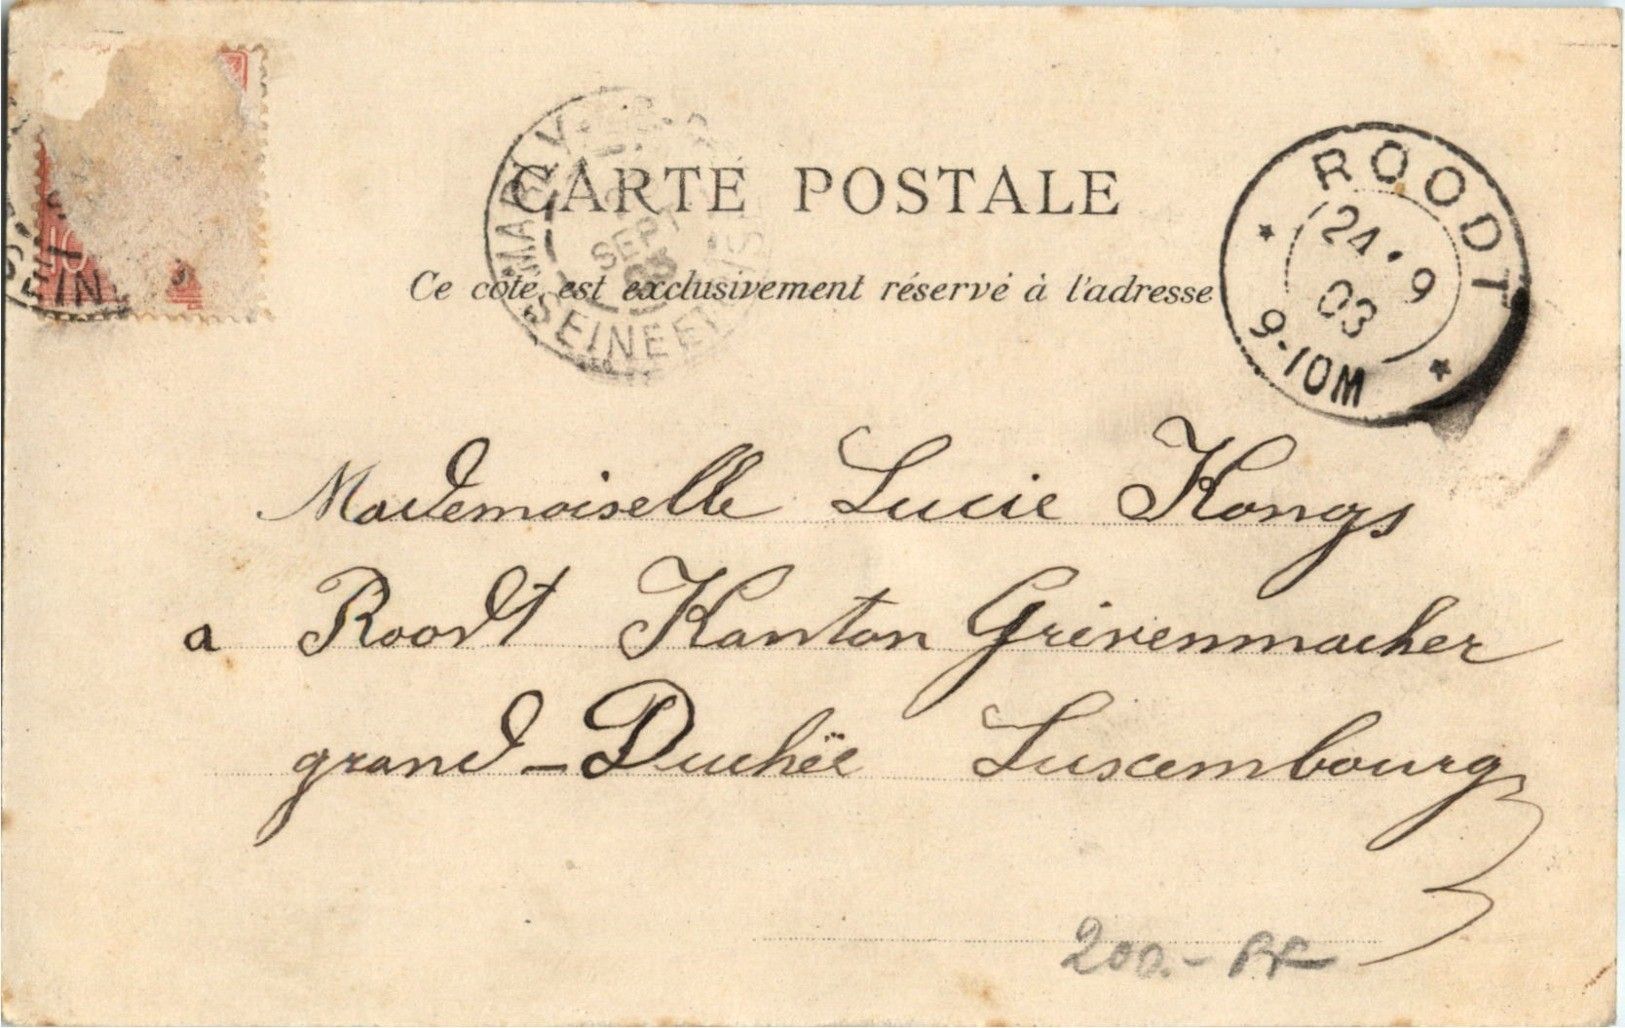 CARTE POSTALE
Ce côté est exclusivement réservé à l'adresse
MARLY
SEPT
03
SEINE ET
ROODT
24·9
03
9-10M
10
SEIN
Mademoiselle Lucie Kongs
a Roodt Kanton Grevenmacher
grand-Duchëe Luxembourg
200.-